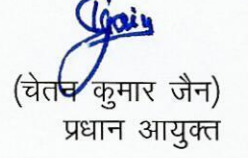 (चेतन कुमार जैन)
प्रधान आयुक्त